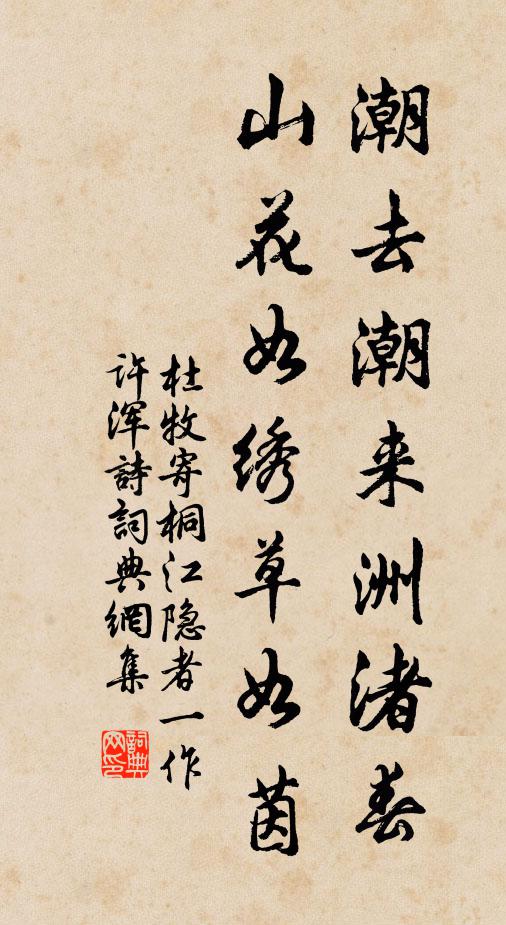 潮去潮来洲渚春
山花如绣草如茵
杜牧寄桐江隐者一作
许浑詩詞典網集
詞典
网印